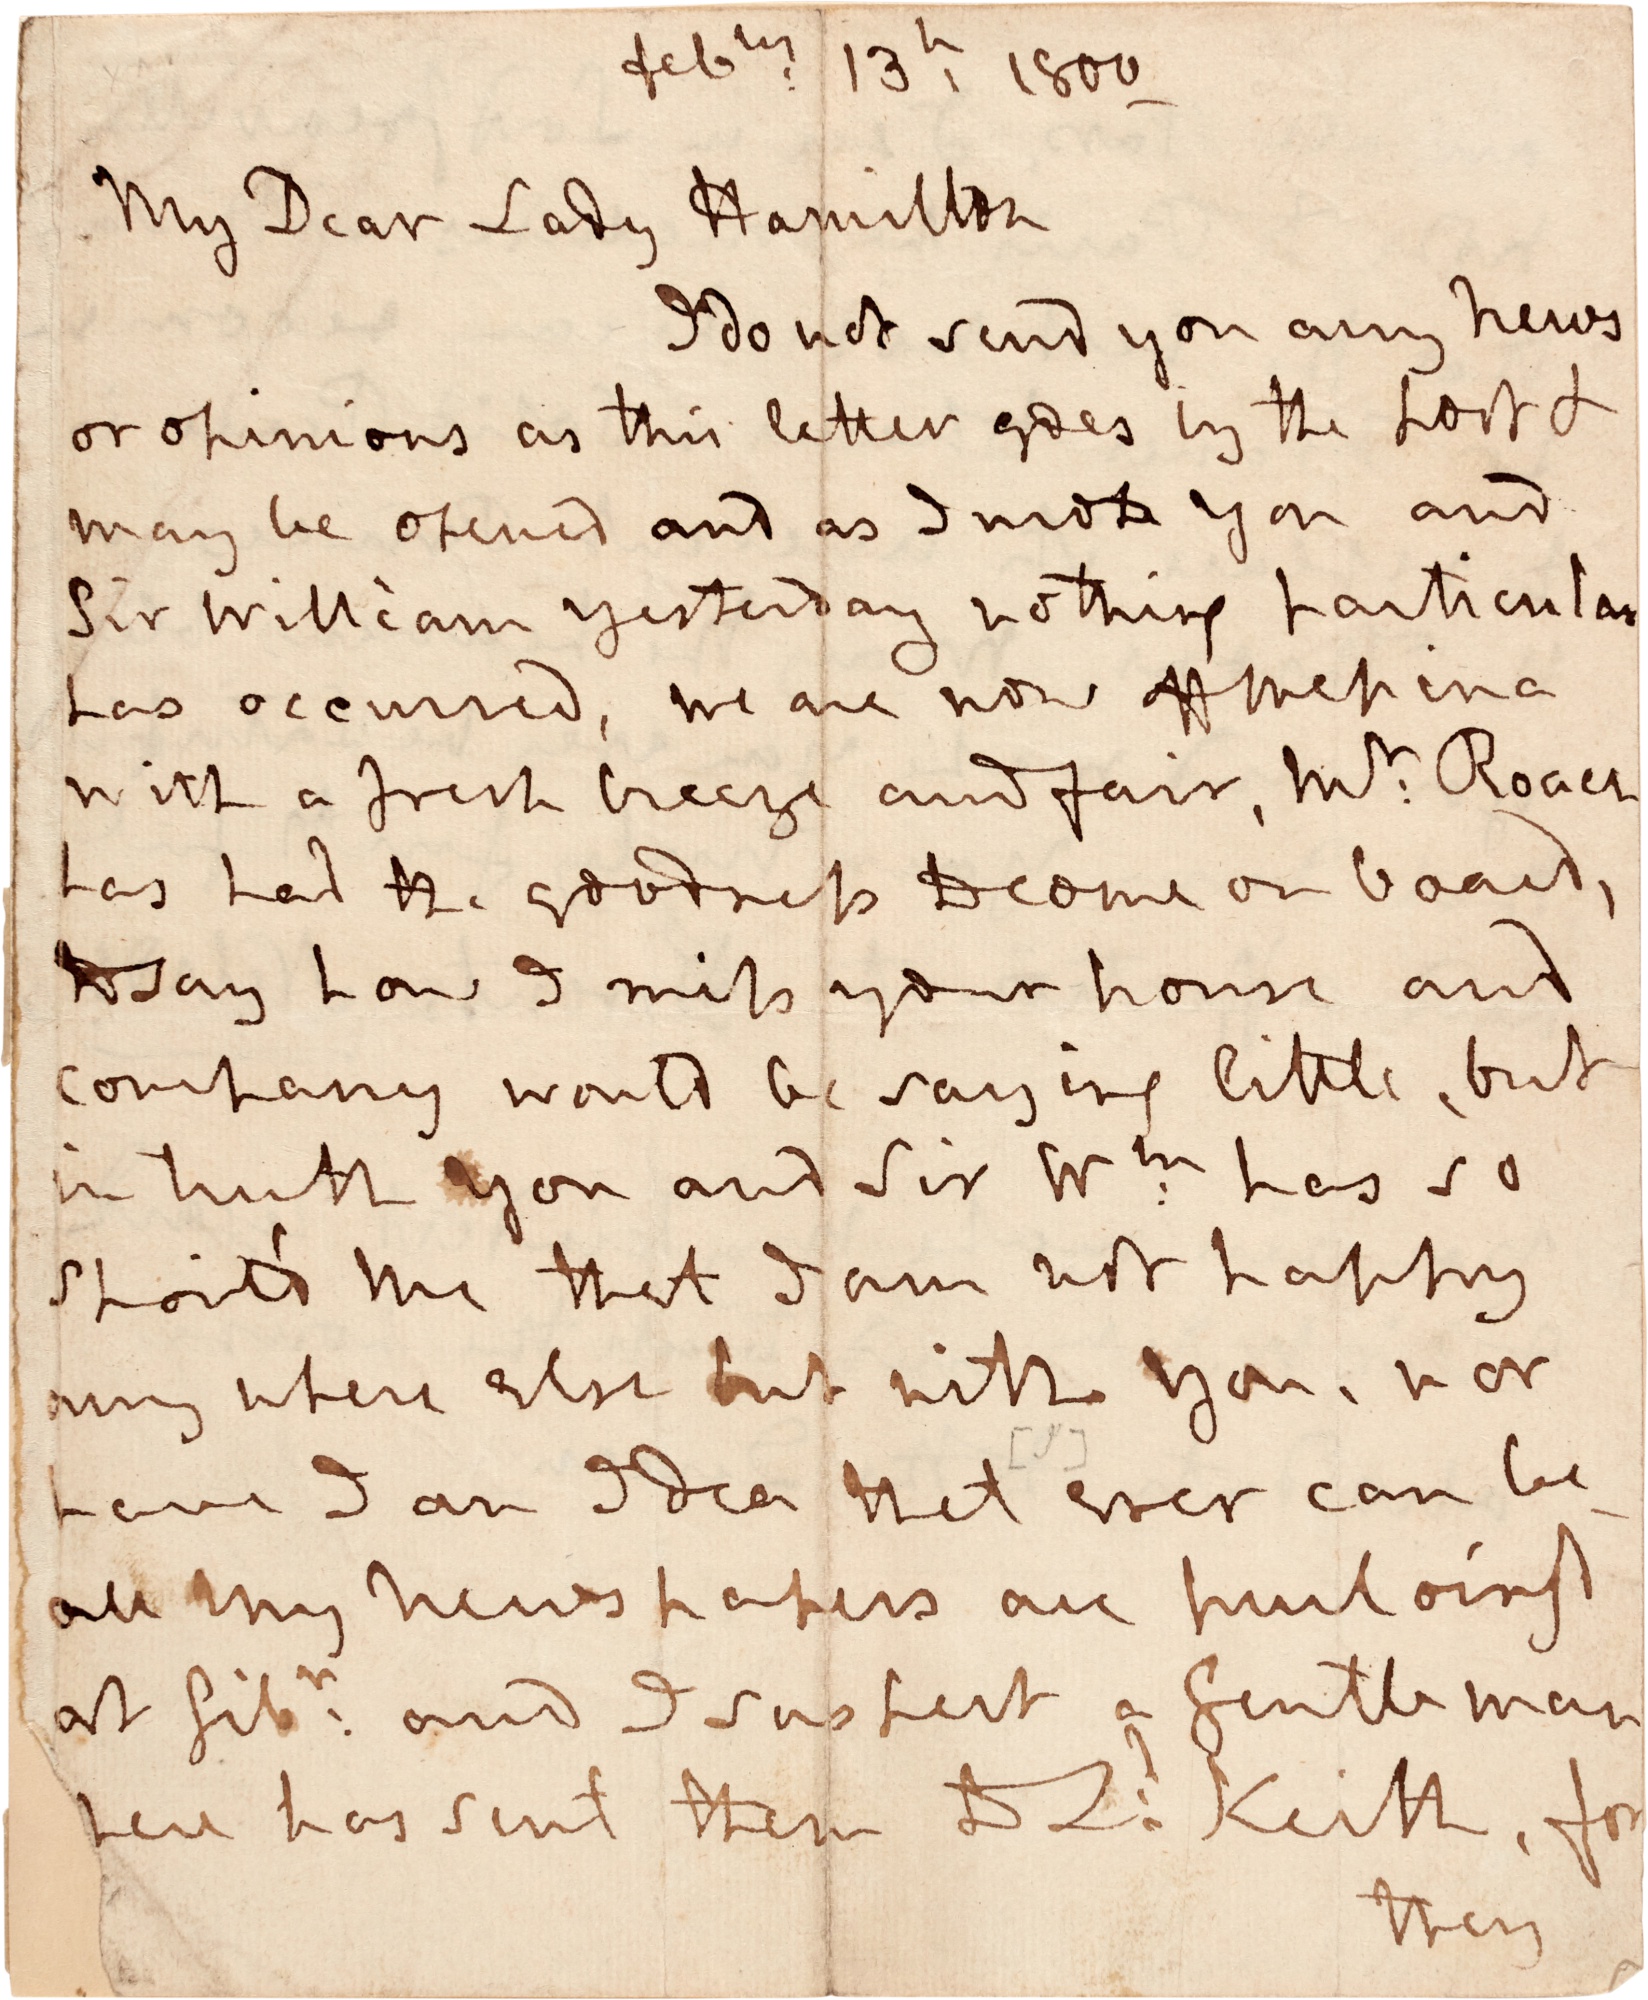 Feb:ry 13th 1800
My Dear Lady Hamilton
I do not send you any news
or opinions as this letter goes by the post &
may be opened and as I wrote you and
Sir William yesterday nothing particular
has occurred, we are now off Messina
with a fresh breeze and fair, Mr: Roach
has had the goodness to come on board,
to say how I miss your house and
company would be saying little, but
in truth you and Sir Wm: has so
spoil'd me that I am not happy
any where else but with you, nor
have I an Idea that [I] ever can be
all my newspapers are purloin'd
at Gibr: and I suspect a Gentleman
here has sent them to Ld: Keith, for
they